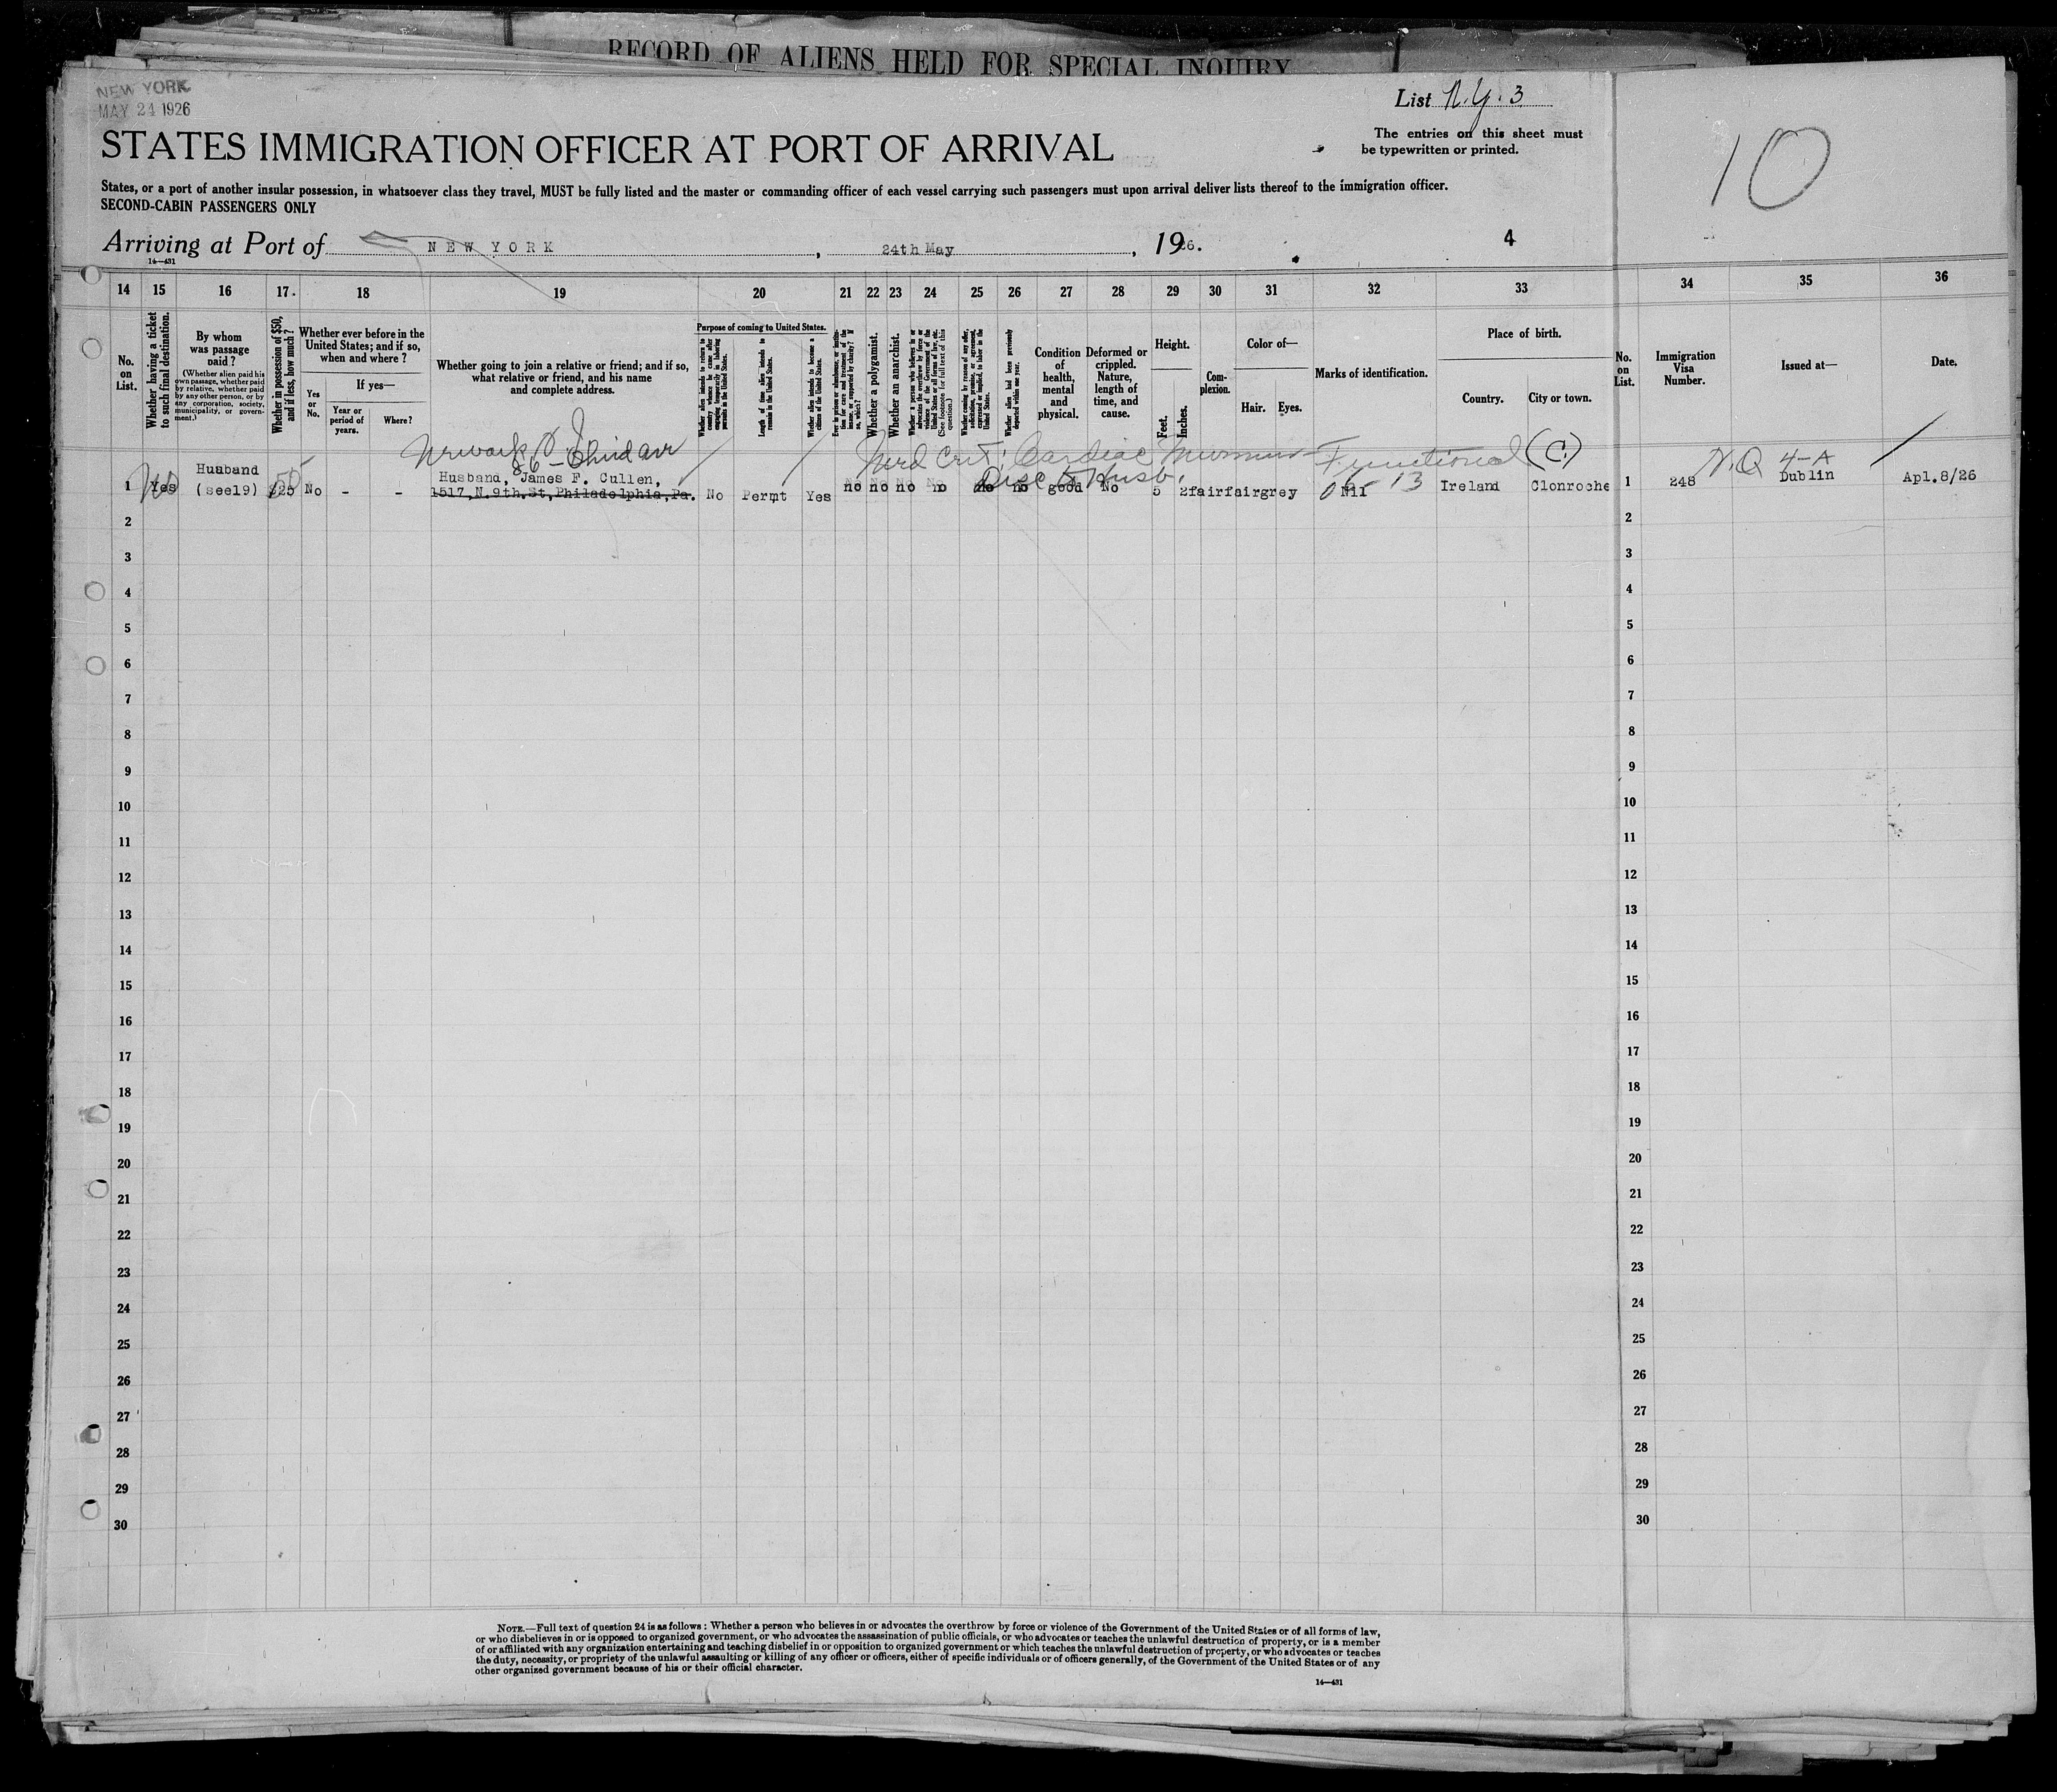 RECORD OF ALIENS HELD FOR SPECIAL INQUIRY
NEW YORK
MAY 24 1926
List N.Y. 3
STATES IMMIGRATION OFFICER AT PORT OF ARRIVAL
The entries on this sheet must
be typewritten or printed.
10
States, or a port of another insular possession, in whatsoever class they travel, MUST be fully listed and the master or commanding officer of each vessel carrying such passengers must upon arrival deliver lists thereof to the immigration officer.
SECOND-CABIN PASSENGERS ONLY
Arriving at Port of NEW YORK, 24th May, 1926.
4
14—431
14 15 16 17. 18 19 20 21 22 23 24 25 26 27 28 29 30 31 32 33 34 35 36
No. on List.
Whether having a ticket to such final destination.
By whom was passage paid?
(Whether alien paid his own passage, whether paid by relative, whether paid by any other person, or by any corporation, society, municipality, or government.)
Whether in possession of $50, and if less, how much?
Whether ever before in the United States; and if so, when and where?
Yes or No.
If yes—
Year or period of years.
Where?
Whether going to join a relative or friend; and if so, what relative or friend, and his name and complete address.
Purpose of coming to United States.
Whether alien intends to return to country whence he came after engaging temporarily in laboring pursuits in the United States.
Length of time alien intends to remain in the United States.
Whether alien intends to become a citizen of the United States.
Ever in prison or almshouse, or institution for care and treatment of the insane, or supported by charity? If so, which?
Whether a polygamist.
Whether an anarchist.
(See footnote for full text of this question.)
Whether alien had been previously deported within one year.
Condition of health, mental and physical.
Deformed or crippled. Nature, length of time, and cause.
Height.
Feet.
Inches.
Complexion.
Color of—
Hair.
Eyes.
Marks of identification.
Place of birth.
Country.
City or town.
No. on List.
Immigration Visa Number.
Issued at—
Date.
Newark N J
86 - Third ave
Med Cert: Cardiac Murmur - Functional (C.)
Disc to Husb.
N.Q 4-A
1 Yes Husband (see19) $25 No - - Husband, James F. Cullen,
1517, N. 9th. St, Philadelphia, Pa. No Permt Yes no no no no no no good No 5 2 fair fair grey Nil Ireland Clonroche 1 248 Dublin Apl. 8/26
50
2 2
3 3
4 4
5 5
6 6
7 7
8 8
9 9
10 10
11 11
12 12
13 13
14 14
15 15
16 16
17 17
18 18
19 19
20 20
21 21
22 22
23 23
24 24
25 25
26 26
27 27
28 28
29 29
30 30
NOTE.—Full text of question 24 is as follows: Whether a person who believes in or advocates the overthrow by force or violence of the Government of the United States or of all forms of law,
or who disbelieves in or is opposed to organized government, or who advocates the assassination of public officials, or who advocates or teaches the unlawful destruction of property, or is a member
of or affiliated with any organization entertaining and teaching disbelief in or opposition to organized government or which teaches the unlawful destruction of property, or who advocates or teaches
the duty, necessity, or propriety of the unlawful assaulting or killing of any officer or officers, either of specific individuals or of officers generally, of the Government of the United States or of any
other organized government because of his or their official character.
14—431